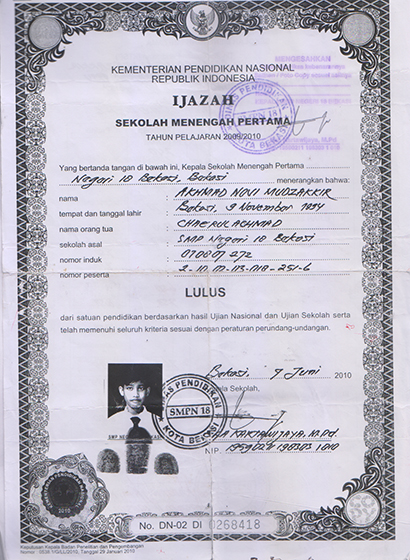 KEMENTERIAN PENDIDIKAN NASIONAL
REPUBLIK INDONESIA
MENGESAHKAN
IJAZAH
SEKOLAH MENENGAH PERTAMA
TAHUN PELAJARAN 2009/2010
DINAS PENDIDIKAN
SMPN 18
KOTA BEKASI
Yang bertanda tangan di bawah ini, Kepala Sekolah Menengah Pertama
Negeri 18 Bekasi, Bekasi menerangkan bahwa:
nama : AKHMAD NOVI MUDZAKKIR
tempat dan tanggal lahir : Bekasi, 9 November 1994
nama orang tua : CHAERUL ACHMAD
sekolah asal : SMP Negeri 18 Bekasi
nomor induk : 070807272
nomor peserta : 2-10-02-113-018-251-6
LULUS
dari satuan pendidikan berdasarkan hasil Ujian Nasional dan Ujian Sekolah serta
telah memenuhi seluruh kriteria sesuai dengan peraturan perundang-undangan.
Bekasi, 7 Juni 2010
Kepala Sekolah,
DINAS PENDIDIKAN
SMPN 18
KOTA BEKASI
NIP.
No. DN-02 DI 0268418
Keputusan Kepala Badan Penelitian dan Pengembangan
Tanggal 29 Januari 2010